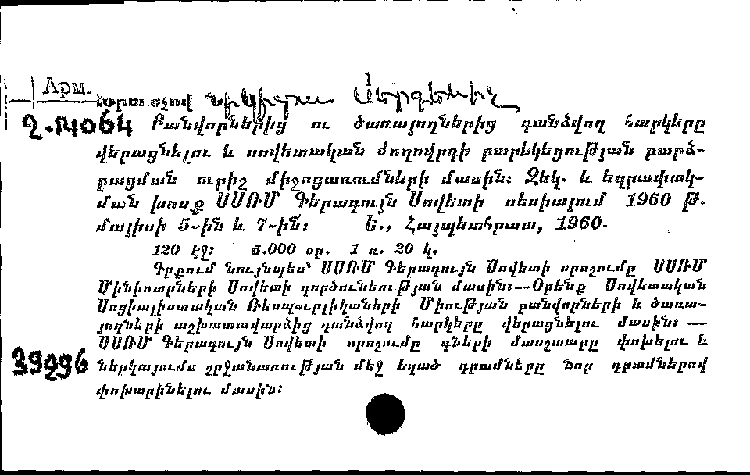 Арм.
Խրուշչով Նիկիտա Սերգեևիչ
Բանվորներից ու ծառայողներից գանձվող հարկերը
վերացնելու և սովետական ժողովրդի բարեկեցության բարձ-
րացման ուրիշ միջոցառումների մասին: Զեկ. և եզրափակ-
ման խոսք ՍՍՌՄ Գերագույն Սովետի սեսիայում 1960 թ.
մայիսի 5-ին և 7-ին: Ե., Հայպետհրատ, 1960.
120 էջ: 5.000 օր. 1 ռ. 20 կ.
Գրքում նույնպես՝ ՍՍՌՄ Գերագույն Սովետի որոշումը ՍՍՌՄ
Մինիստրների Սովետի գործունեության մասին:—Օրենք Սովետական
Սոցիալիստական Ռեսպուբլիկաների Միության բանվորների և ծառա-
յողների աշխատավարձից գանձվող հարկերը վերացնելու մասին: —
ՍՍՌՄ Գերագույն Սովետի որոշումը գների մասշտաբը փոխելու և
ներկայումս շրջանառության մեջ եղած դրամները նոր դրամներով
փոխարինելու մասին:
39996